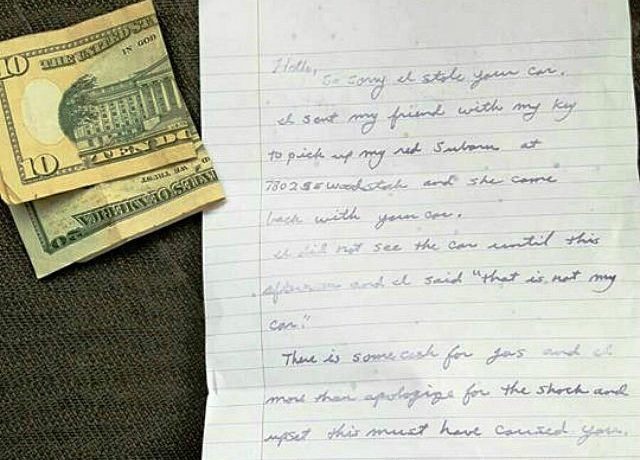 10 THE UNITED ST
IN GOD
10 TEN D
20
Hello, So sorry I stole your car.
I sent my friend with my key
to pick up my red Subaru at
7802 SE Woodstock and she came
back with your car.
I did not see the car until this
afternoon and I said "that is not my
car."
There is some cash for gas and I
more than apologize for the shock and
upset this must have caused you.